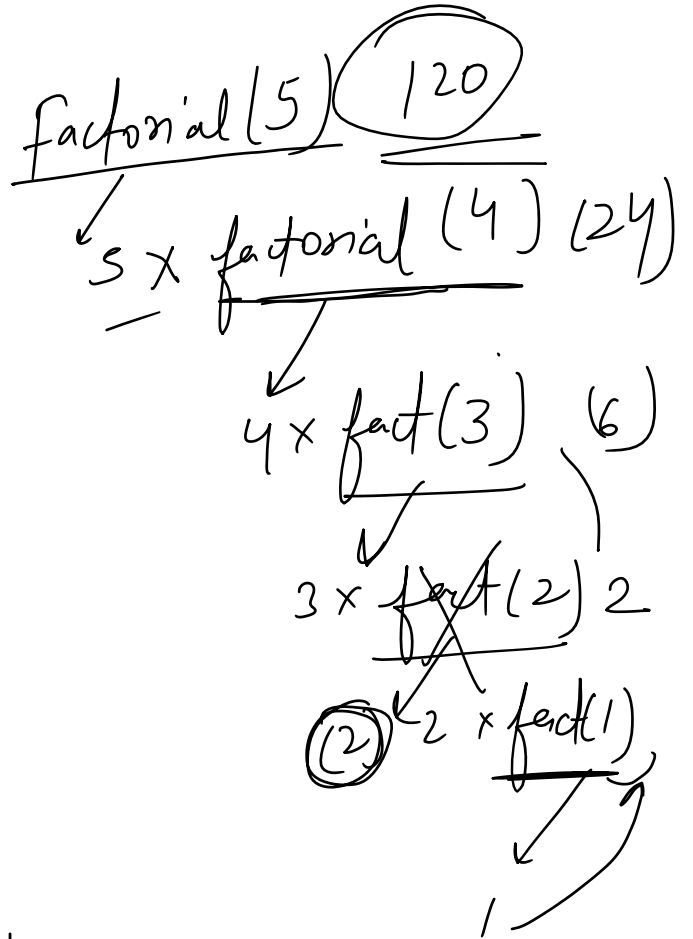 factorial(5) 120
5 x factorial (4) (24)
4 x fact(3) (6)
3 x fact(2) 2
(2) 2 x fact(1)
1